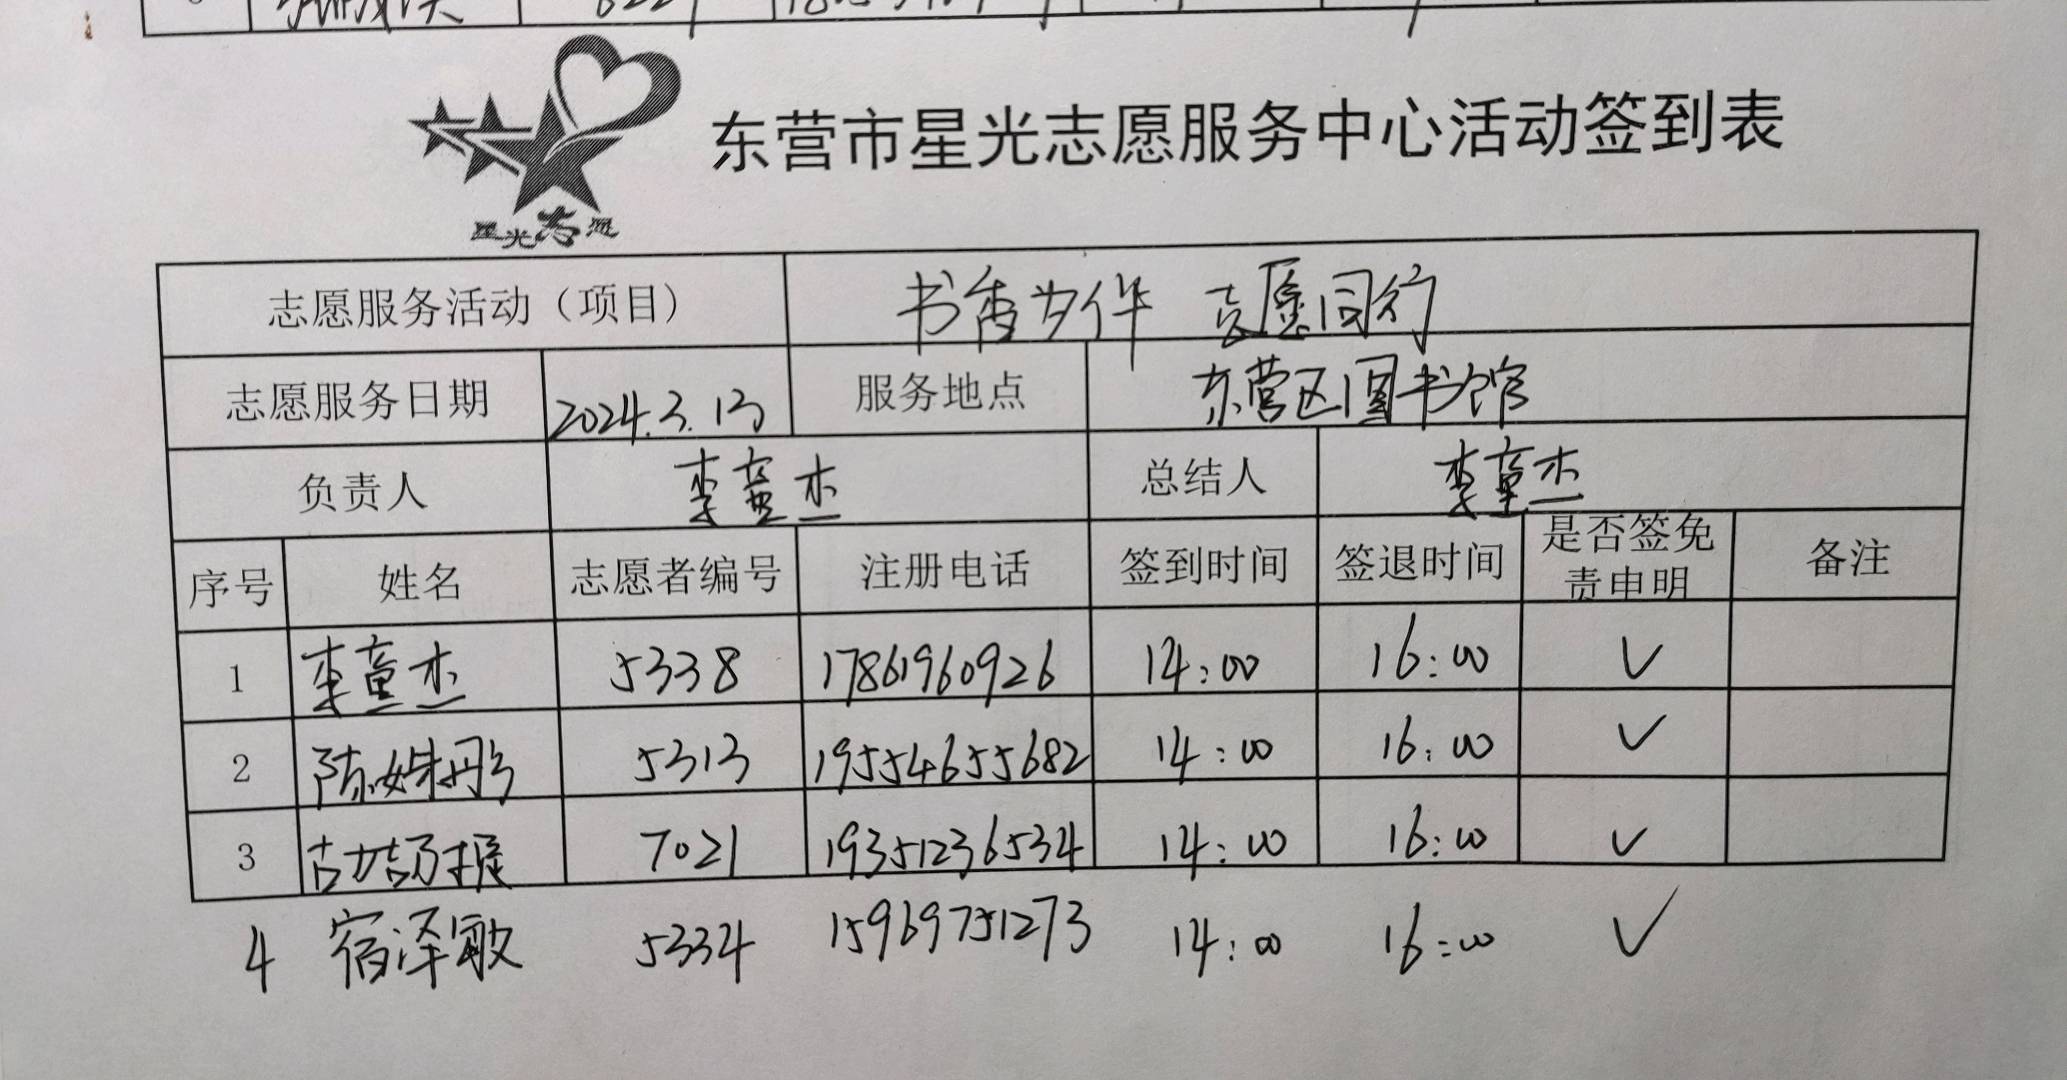 东营市星光志愿服务中心活动签到表
星光志愿
志愿服务活动（项目） 书香为伴 志愿同行
志愿服务日期 2024.3.13 服务地点 东营区图书馆
负责人 李童杰 总结人 李童杰
序号 姓名 志愿者编号 注册电话 签到时间 签退时间 是否签免责申明 备注
1 李童杰 5338 17861960926 14:00 16:00 ✓
2 陈姝彤 5313 19554655682 14:00 16:00 ✓
3 7021 19351236534 14:00 16:00 ✓
4 宿泽敏 5334 15969751273 14:00 16:00 ✓